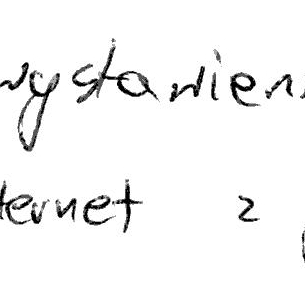 wystawien
ternet z